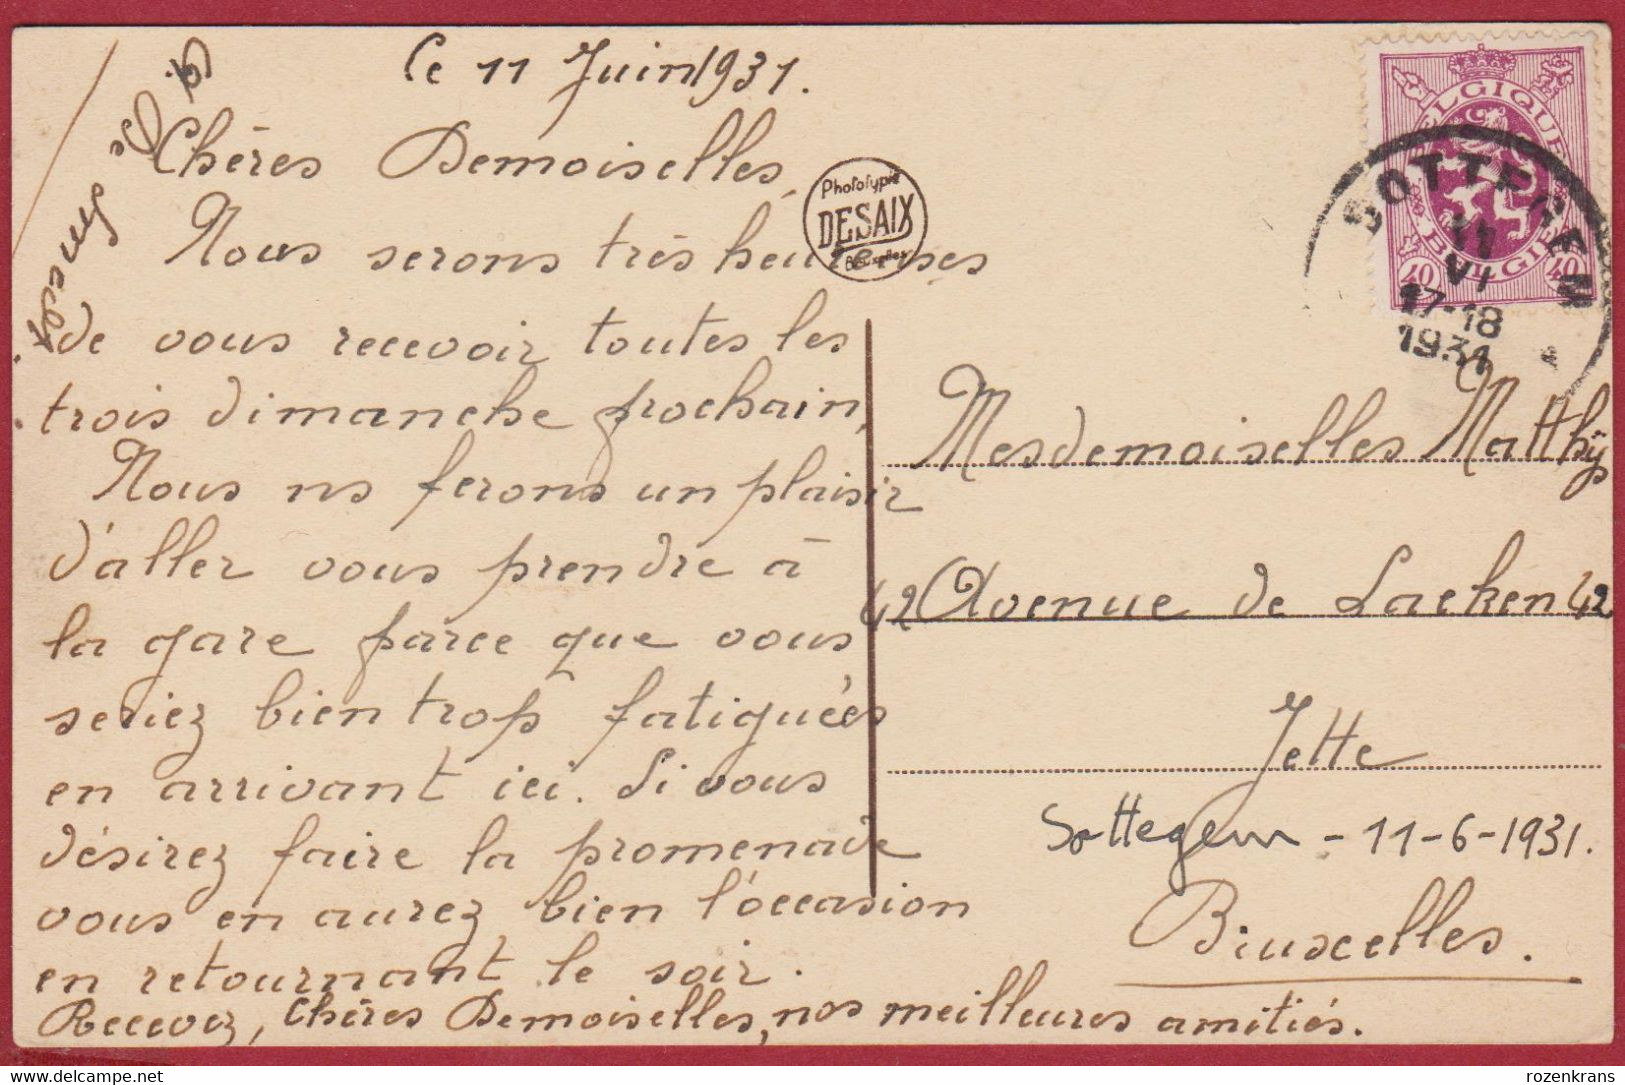 Ce 11 Juin 1931.
Chères Demoiselles,
Nous serons très heureuses
de vous recevoir toutes les
trois dimanche prochain,
Nous ns ferons un plaisir
d'aller vous prendre à
la gare parce que vous
seriez bien trop fatiguées
en arrivant ici. Si vous
désirez faire la promenade
vous en aurez bien l'occasion
en retournant le soir.
Recevez, Chères Demoiselles, nos meilleures amitiés.
Phototypie
DESAIX
Bruxelles
BELGIQUE
BELGIE
40 40
SOTTEGEM
11
VI
17-18
1931
Mesdemoiselles Matthÿs
42 Avenue de Laeken 42
Jette
Sottegem - 11-6-1931.
Bruxelles.
rozenkrans